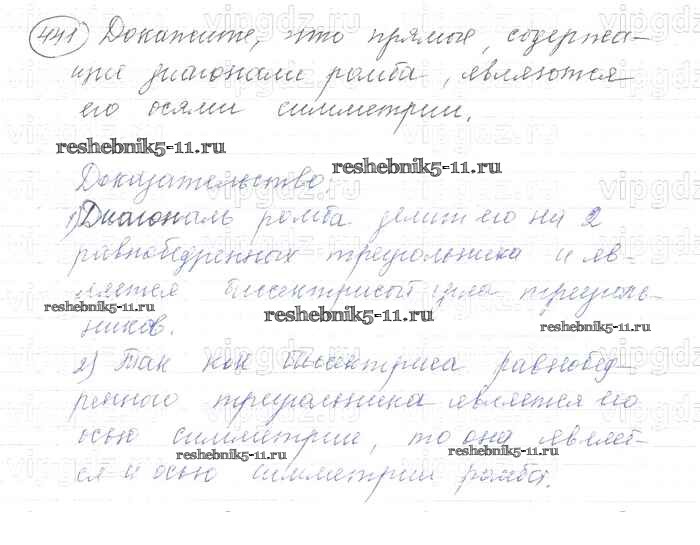 441 Докажите, что прямые, содержа-
щие диагонали ромба, являются
его осями симметрии.
reshebnik5-11.ru
reshebnik5-11.ru
Доказательство:
1) Диагональ ромба делит его на 2
равнобедренных треугольника и яв-
ляется биссектрисой угла треуголь-
reshebnik5-11.ru
reshebnik5-11.ru
reshebnik5-11.ru
ников.
2) Так как биссектриса равнобед-
ренного треугольника является его
осью симметрии, то она являет-
reshebnik5-11.ru
reshebnik5-11.ru
ся и осью симметрии ромба.
vipgdz.ru